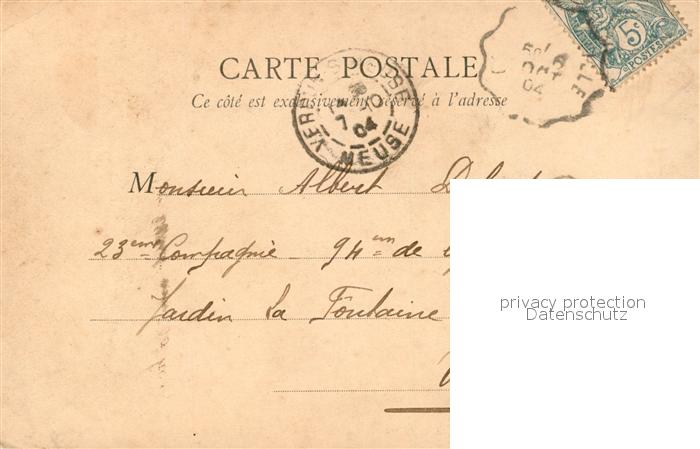 5c
POSTES
CARTE POSTALE
Ce côté est exclusivement réservé à l'adresse
7 04
MEUSE
04
Monsieur Albert
23ème Compagnie - 94em de
Jardin La Fontaine
privacy protection
Datenschutz